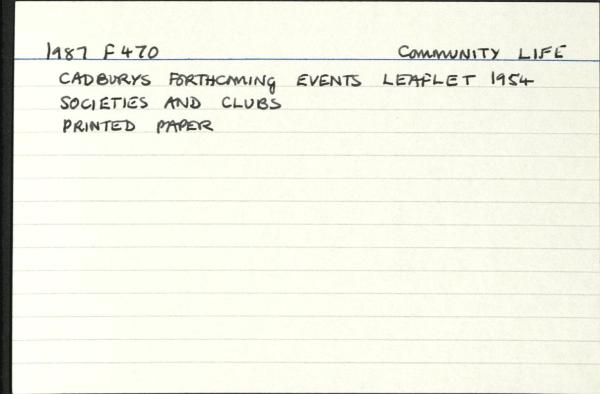 1987 F470 COMMUNITY LIFE
CADBURYS FORTHCOMING EVENTS LEAFLET 1954
SOCIETIES AND CLUBS
PRINTED PAPER